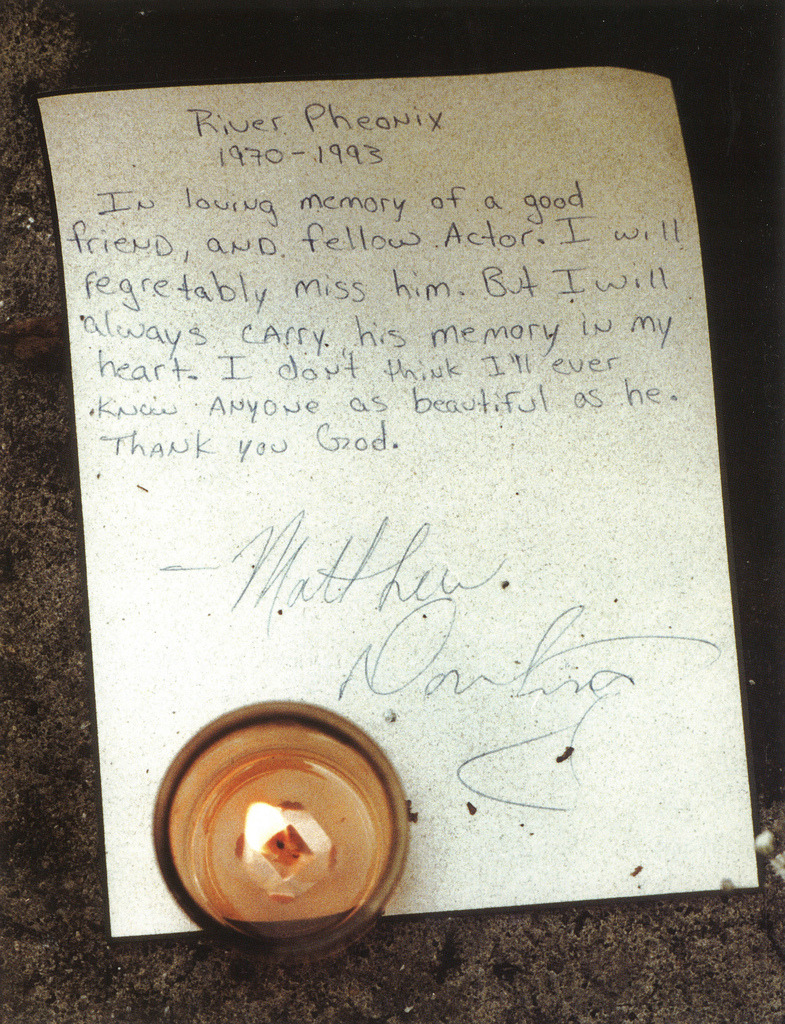 River Pheonix
1970-1993
In loving memory of a good
friend, and fellow Actor. I will
regretably miss him. But I will
always carry his memory in my
heart. I don't think I'll ever
know anyone as beautiful as he.
Thank you God.
- Matthew